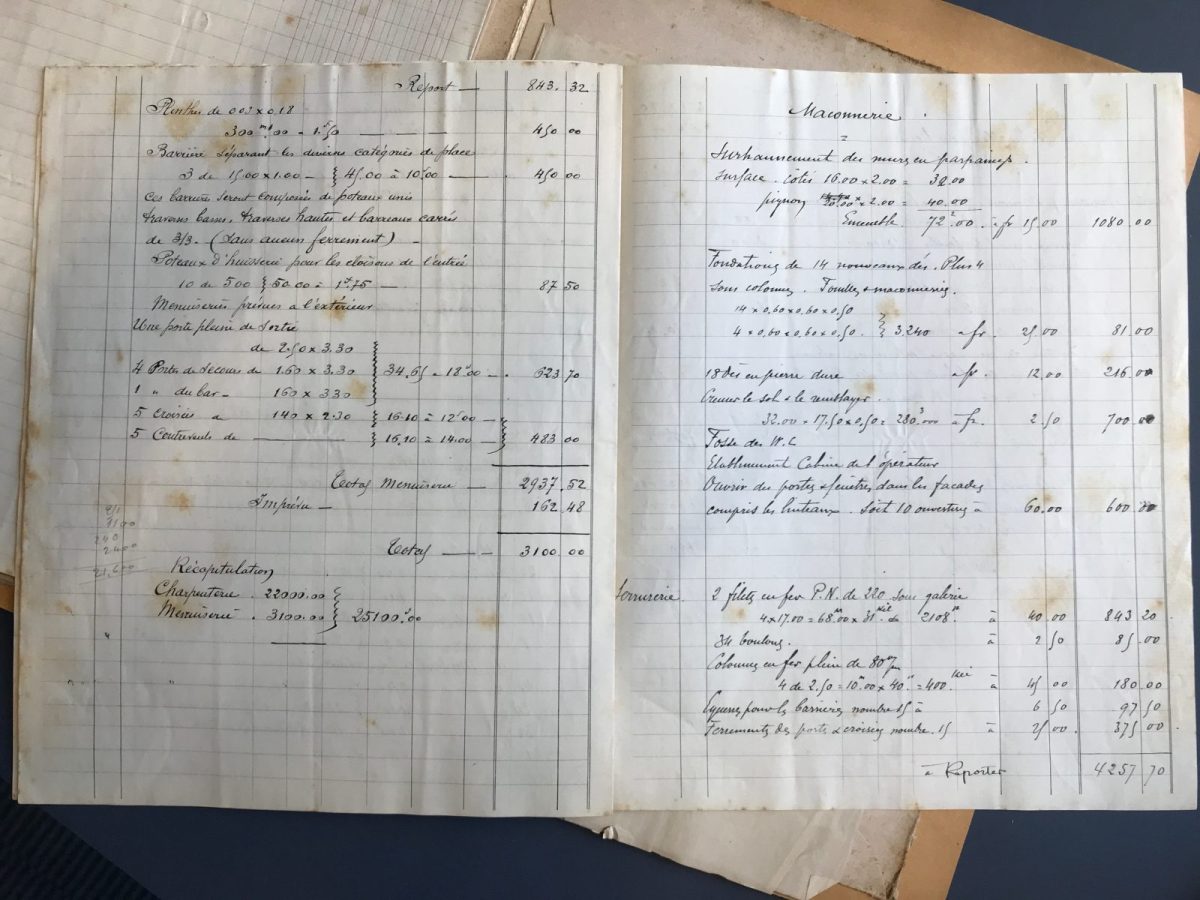 Report — 843.32
Plinthes de 003 x 0.18
300 ml.00 = 1f.50 — 450 00
Barrière séparant les diverses catégories de place
3 de 15.00 x 1.00 — } 45.00 = 10f00 — 450 00
Ces barrières seront composées de poteaux unis
traverses basses, traverses hautes et barreaux carrés
de 3/3. (Sans aucun ferrement) —
Poteaux d'huisserie pour les cloisons de l'entrée
10 de 500 } 50.00 = 1f.75 — 87.50
Menuiseries prévues a l'extérieur
Une porte pleine de sortie
de 2.50 x 3.30
4 Portes de secours de 1.60 x 3.30 } 34.65 = 18f00 — 623.70
1 " du bar — 160 x 330
5 croisées a 140 x 2.30 } 16.10 = 12f00 —
5 Contrevents de — } 16.10 = 14.00 — } 483.00
Total Menuiserie — 2937.52
Imprévu — 162.48
Total — 3100.00
3100
240
2400
21,600
Récapitulation
Charpenterie . 22000.00 }
Menuiserie . 3100.00 } 25100f.00
Maconnerie .
Surhaussement des murs en parpaings
Surface . côtés 16.00 x 2.00 = 32.00
pignon 20.00 x 2.00 = 40.00
Ensemble 72 2.00 . a fr 15.00 1080.00
Fondations de 14 nouveaux dés . Plus 4
sous colonnes . Fouilles & maconneries
14 x 0,60 x 0,60 x 0,50
4 x 0,60 x 0,60 x 0,50 . } 3.240 a fr . 25.00 81.00
18 Dés en pierre dure a fr . 12.00 216.00
Creuser le sol & le remblayer .
32.00 = 17.50 x 0,50 = 280 3.000 a fr. 2.50 700.00
Fosse des W.C
Etablissement Cabine de l'opérateur
Ouvrir des portes & fenêtres dans les facades
compris les linteaux . Soit 10 ouvertures a 60.00 600.00
Serrurerie . 2 filets en fer P.N. de 220 sous galerie
4 x 17.00 = 68 m.00 x 31 kil de 2108 k à 40.00 843 20
34 boulons . à 2.50 85.00
Colonnes en fer plein de 80 m/m
4 de 2.50 = 10 m.00 x 40 k = 400 . kil à 45 00 180.00
Equerres pour les barrières nombre 15 à 6 50 97.50
Ferrements des portes & croisées nombre . 15 à 25 00 . 375.00
à Reporter 4257 70